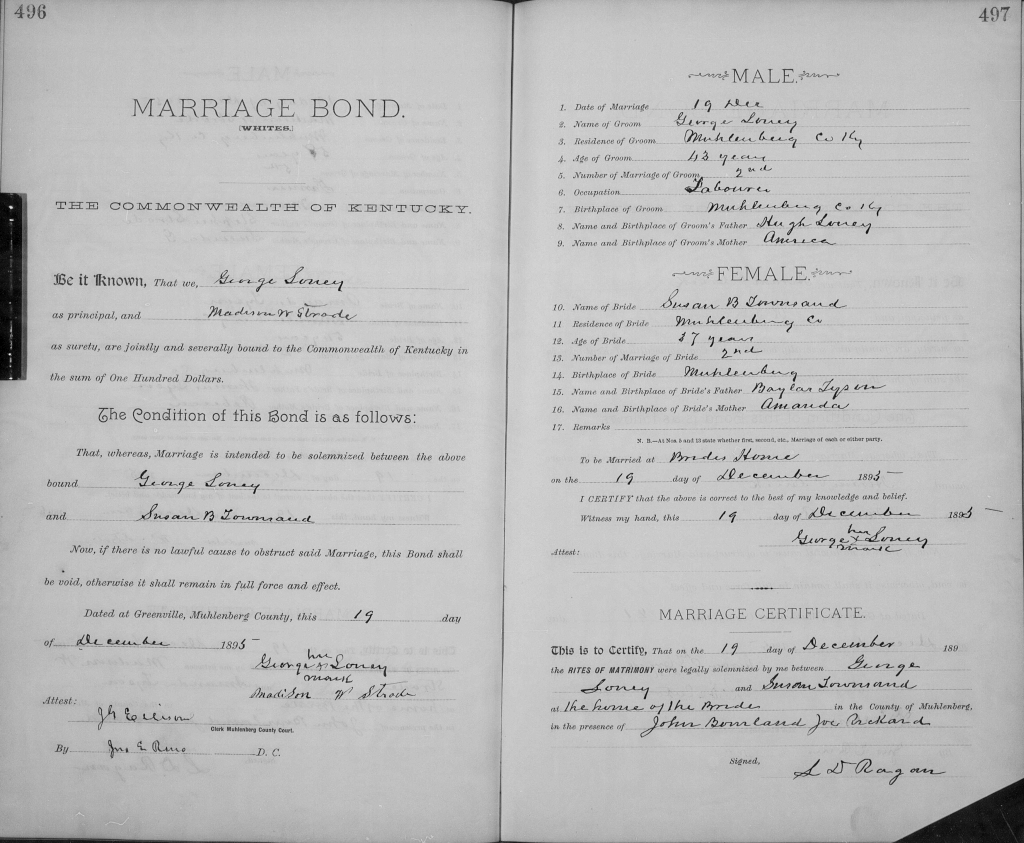 496
MARRIAGE BOND.
(WHITES.)
THE COMMONWEALTH OF KENTUCKY.
Be it Known, That we, George Loney
as principal, and Madison W Strade
as surety, are jointly and severally bound to the Commonwealth of Kentucky in
the sum of One Hundred Dollars.
The Condition of this Bond is as follows:
That, whereas, Marriage is intended to be solemnized between the above
bound George Loney
and Susan B Townsand
Now, if there is no lawful cause to obstruct said Marriage, this Bond shall
be void, otherwise it shall remain in full force and effect.
Dated at Greenville, Muhlenberg County, this 19 day
of December 1895
his
George x Loney
mark
Madison W Strade
Attest:
Clerk Muhlenberg County Court.
By Jno E Reno D. C.
497
MALE.
1. Date of Marriage 19 Dec
2. Name of Groom George Loney
3. Residence of Groom Muhlenberg Co Ky
4. Age of Groom 43 years
5. Number of Marriage of Groom 2nd
6. Occupation Labourer
7. Birthplace of Groom Muhlenberg Co Ky
8. Name and Birthplace of Groom's Father Hugh Loney
9. Name and Birthplace of Groom's Mother
FEMALE.
10. Name of Bride Susan B Townsand
11 Residence of Bride Muhlenberg Co
12. Age of Bride 37 years
13. Number of Marriage of Bride 2nd
14. Birthplace of Bride Muhlenberg
15. Name and Birthplace of Bride's Father Baylor Tyson
16. Name and Birthplace of Bride's Mother Amanda
17. Remarks
N. B.—At Nos. 5 and 13 state whether first, second, etc., Marriage of each or either party.
To be Married at Brides Home
on the 19 day of December 1895
I CERTIFY that the above is correct to the best of my knowledge and belief.
Witness my hand, this 19 day of December 1895
his
George x Loney
mark
Attest:
MARRIAGE CERTIFICATE.
This is to Certify, That on the 19 day of December 189
the RITES OF MATRIMONY were legally solemnized by me between George
Loney and Susan Townsand
at the home of the Brides in the County of Muhlenberg,
in the presence of John Bourland Joe Vickard
Signed,
S D Ragan